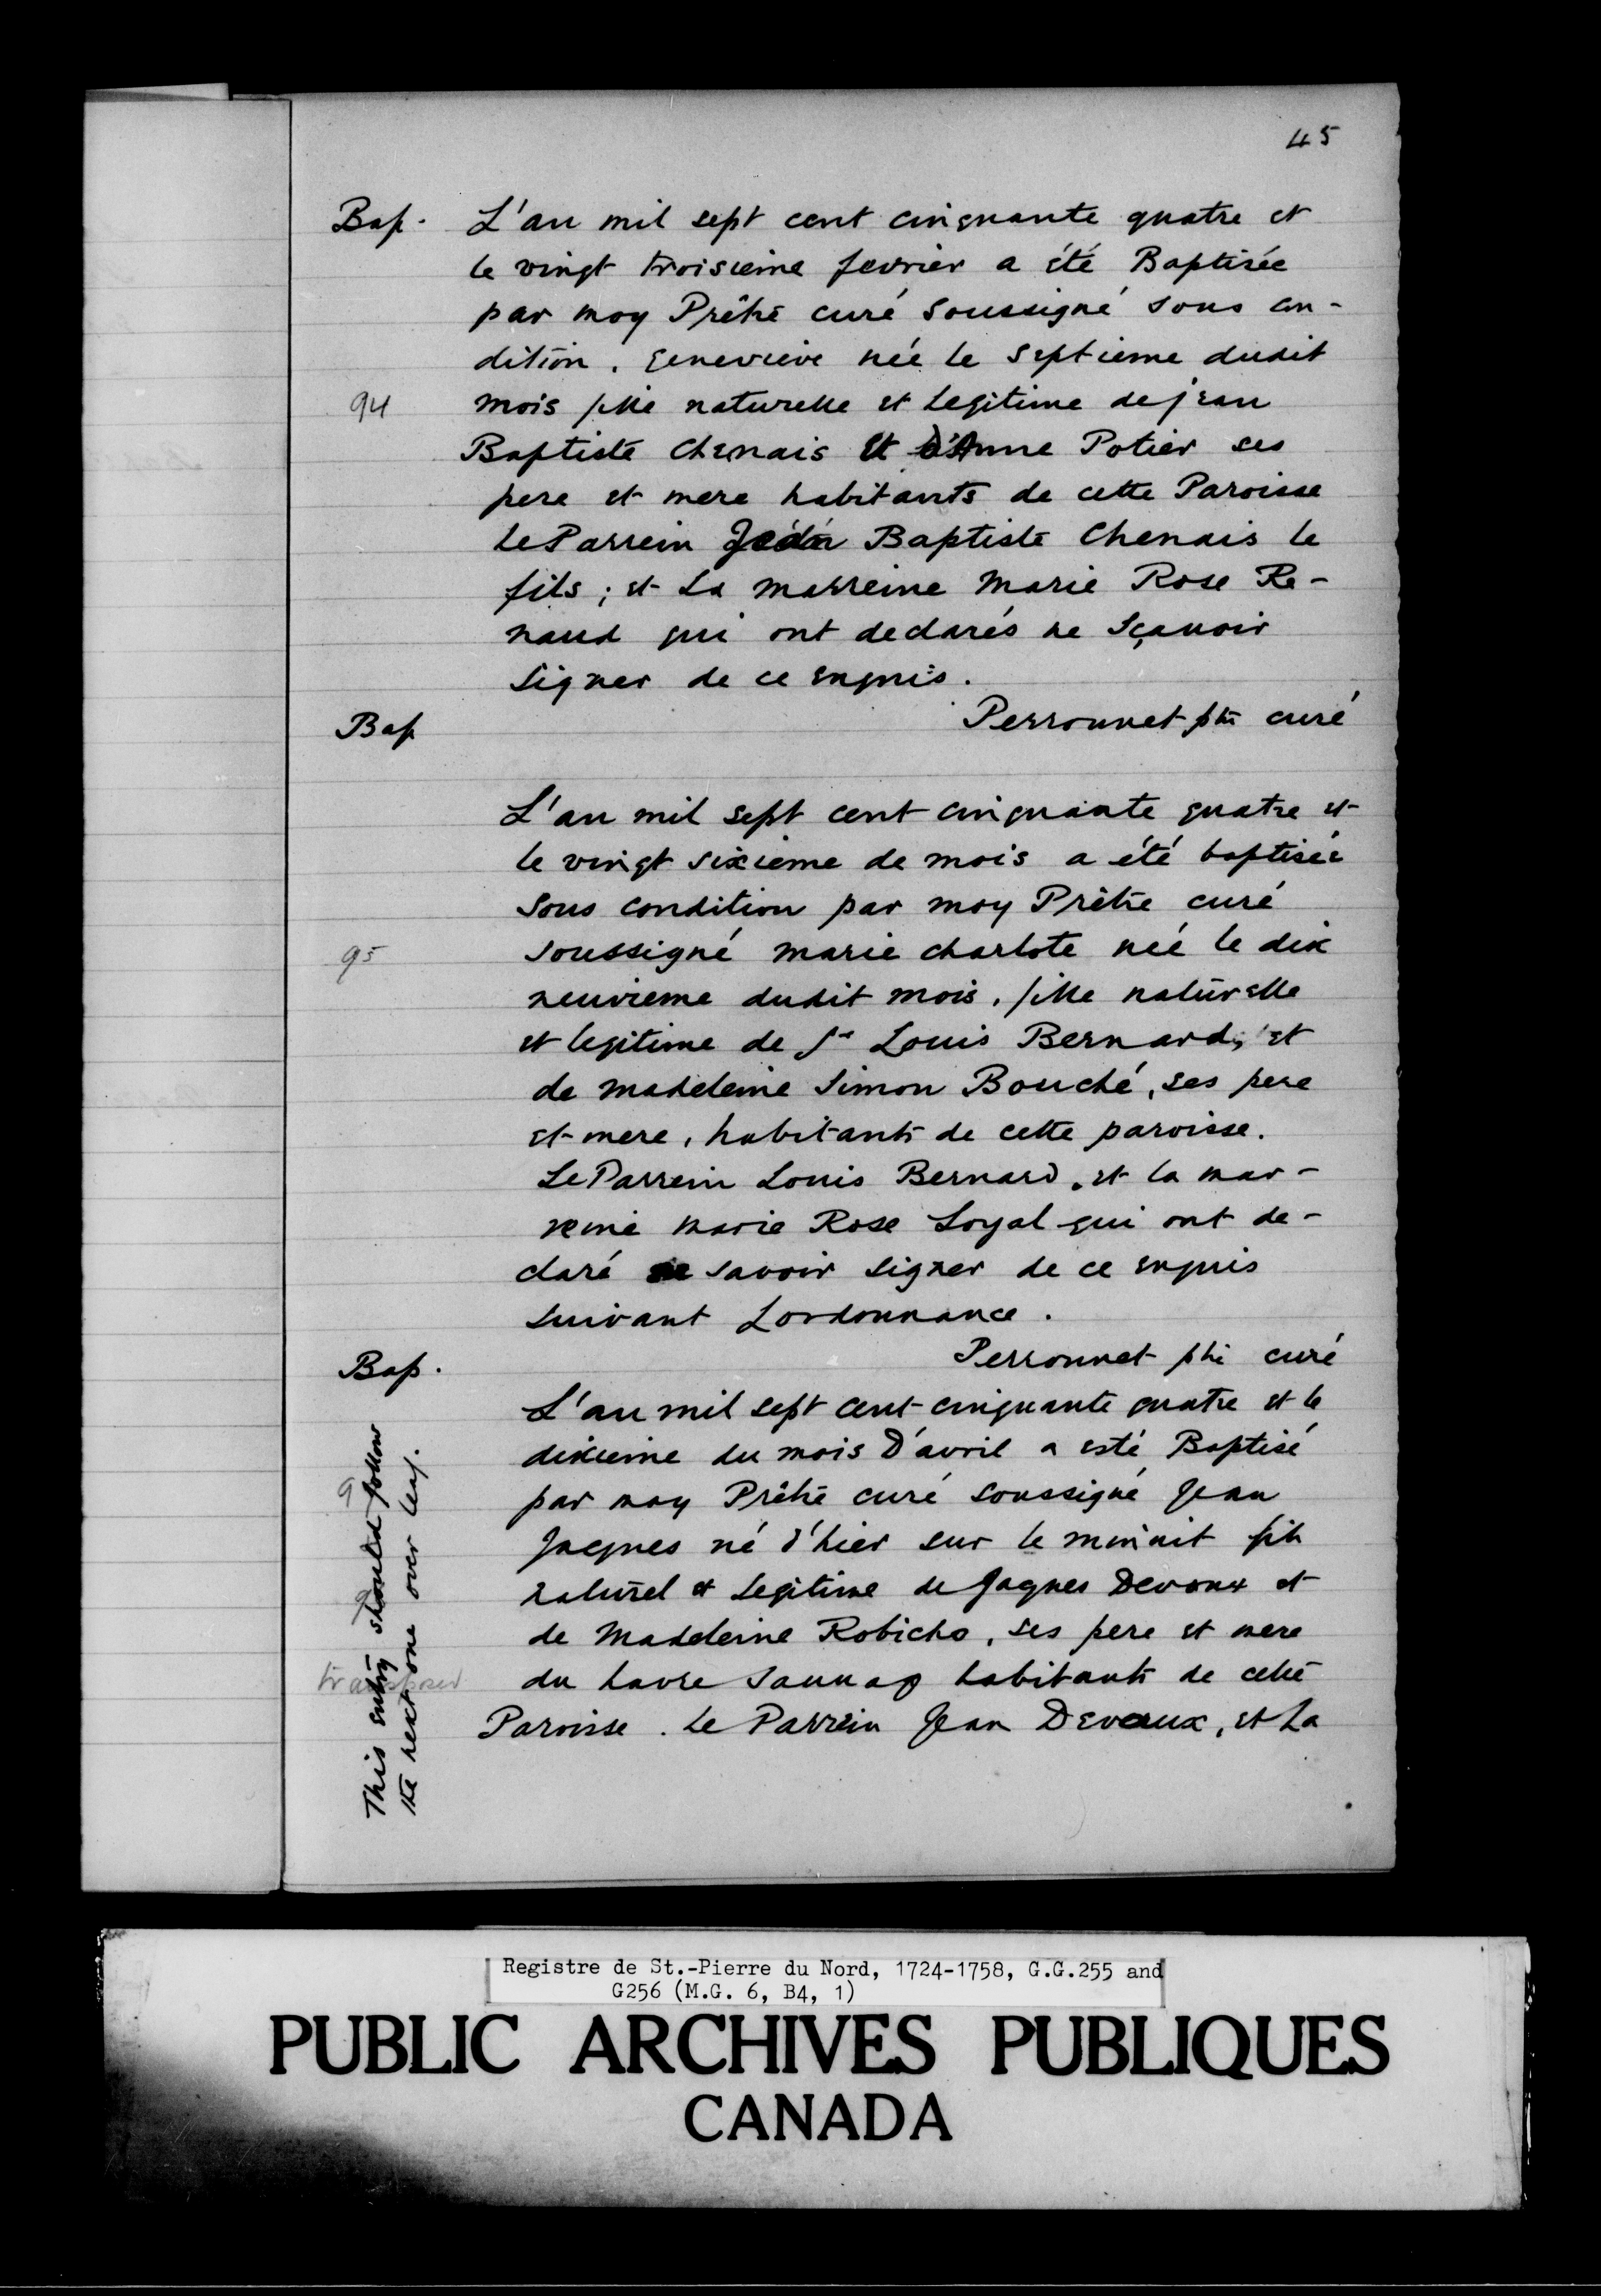 45
Bap. L'an mil sept cent cinquante quatre et
le vingt troisieme fevrier a été Baptisée
par moy Prêtre curé soussigné sous con-
dition. Genevieve née le septieme dudit
94 mois fille naturelle et legitime de jean
Baptiste Chenais et d'Anne Potier ses
pere et mere habitants de cette Paroisse
le Parrein Baptiste Chenais le
fils; et La marreine Marie Rose Re-
naud qui ont declarés ne Sçavoir
signer de ce enquis.
Perronnet ptre curé
Bap
L'an mil sept cent cinquante quatre et
le vingt sixieme de mois a été baptisée
sous condition par moy Prêtre curé
95 soussigné marie charlote née le dix
neuvieme dudit mois, fille naturelle
et legitime de Sr Louis Bernard, et
de madeleine Simon Bouché, ses pere
et mere, habitants de cette paroisse.
Le Parrein Louis Bernard, et la mar-
reine marie Rose Loyal qui ont de-
claré ne savoir signer de ce enquis
suivant Lordonnance.
Perronnet ptre curé
Bap.
L'an mil sept cent cinquante quatre et le
dixieme du mois D'avril a esté Baptisé
par moy Prêtre curé soussigné Jean
Jacques né d'hier sur le minuit fils
naturel et Legitime de Jaques Devaux et
de Madeleine Robicho, ses pere et mere
du havre habitants de cette
Paroisse. Le Parrein Jean Devaux, et La
This entry should follow
the next one over leaf.
transposed
Registre de St.-Pierre du Nord, 1724-1758, G.G.255 and
G256 (M.G. 6, B4, 1)
PUBLIC ARCHIVES PUBLIQUES
CANADA